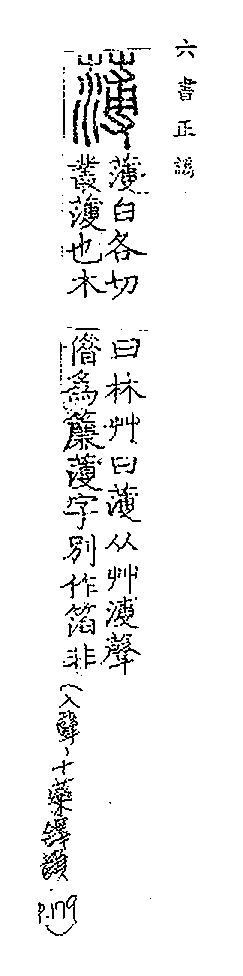 六書正譌
薄
薄白各切
叢薄也木
曰林艸曰薄从艸溥聲
僭爲簾薄字別作箔非(入聲、十藥鐸韻
p.179)